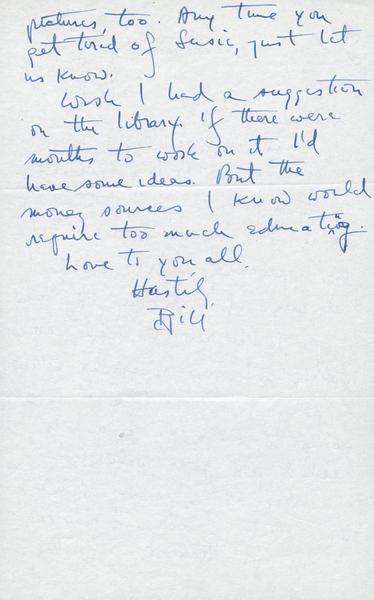 pictures, too. Any time you
get tired of Susie, just let
us know.
Wish I had a suggestion
on the library. If there were
months to work on it I'd
have some ideas. But the
money sources I know would
require too much educating.
Love to you all.
Hastily,
Bill